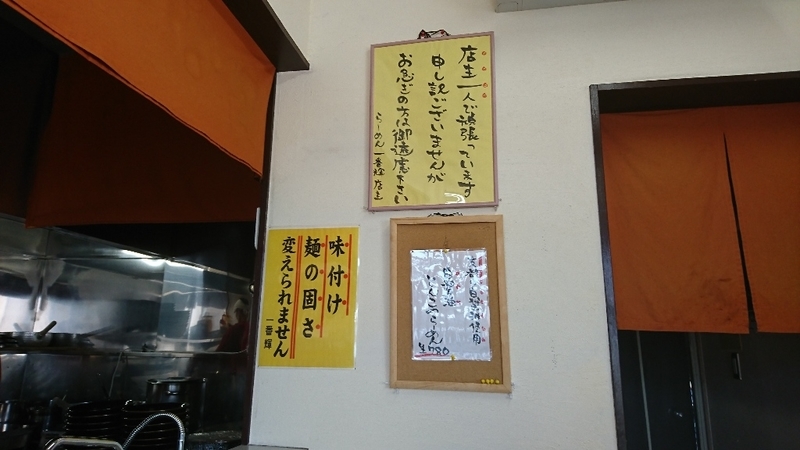 店主一人で頑張っています
申し訳ございませんが
お急ぎの方は御遠慮下さい
らーめん一番輝 店主
味付け
麺の固さ
変えられません
一番輝
使用
らーめん
¥780